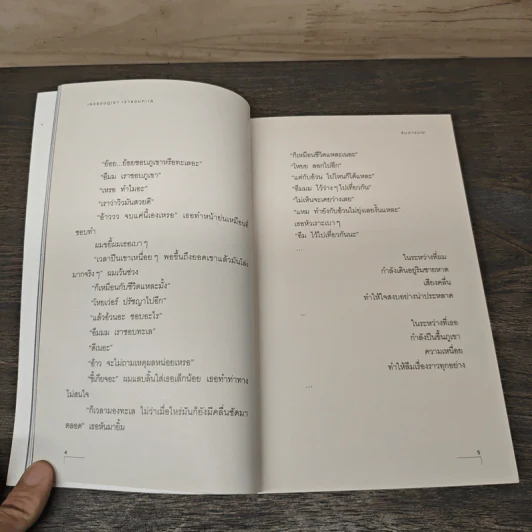 เธอชอบภูเขา เราชอบทะเล
"อ้อย...อ้อยชอบภูเขาหรือทะเลอะ"
"อืมม เราชอบภูเขา"
"เหรอ ทำไมอะ"
"เราว่าวิวมันสวยดี"
"อ้าววว จบแค่นี้เองเหรอ" เธอทำหน้าย่นเหมือนที่
ชอบทำ
ผมขยี้ผมเธอเบาๆ
"เวลาปีนเขาเหนื่อยๆ พอขึ้นถึงยอดเขาแล้วมันโล่ง
มากจริงๆ" ผมเว้นช่วง
"ก็เหมือนกับชีวิตแหละมั้ง"
"โหยเว่อร์ ปรัชญาไปอีก"
"แล้วอ้วนอะ ชอบอะไร"
"อืมมม เราชอบทะเล"
"ดีเนอะ"
"อ้าว จะไม่ถามเหตุผลหน่อยเหรอ"
"ขี้เกียจอะ" ผมแลบลิ้นใส่เธอเล็กน้อย เธอทำท่าทาง
ไม่สนใจ
"ก็เวลามองทะเล ไม่ว่าเมื่อไหร่มันก็ยังมีคลื่นซัดมา
ตลอด" เธอหันมายิ้ม
4
"ก็เหมือนชีวิตแหละเนอะ"
"โหยย ลอกไปอีก"
"แต่กับอ้วน ไปไหนก็ได้แหละ"
"อืมมม ไว้ว่างๆ ไปเที่ยวกัน"
"ไม่เห็นจะเคยว่างเลย"
"แหม ทำยังกับอ้วนไม่ยุ่งเลยงั้นแหละ"
เธอหัวเราะเบาๆ
"อืม ไว้ไปเที่ยวกันนะ"
...
ในระหว่างที่ผม
กำลังเดินอยู่ริมชายหาด
เสียงคลื่น
ทำให้ใจสงบอย่างน่าประหลาด
...
ในระหว่างที่เธอ
กำลังปีนขึ้นภูเขา
ความเหนื่อย
ทำให้ลืมเรื่องราวทุกอย่าง
...
5